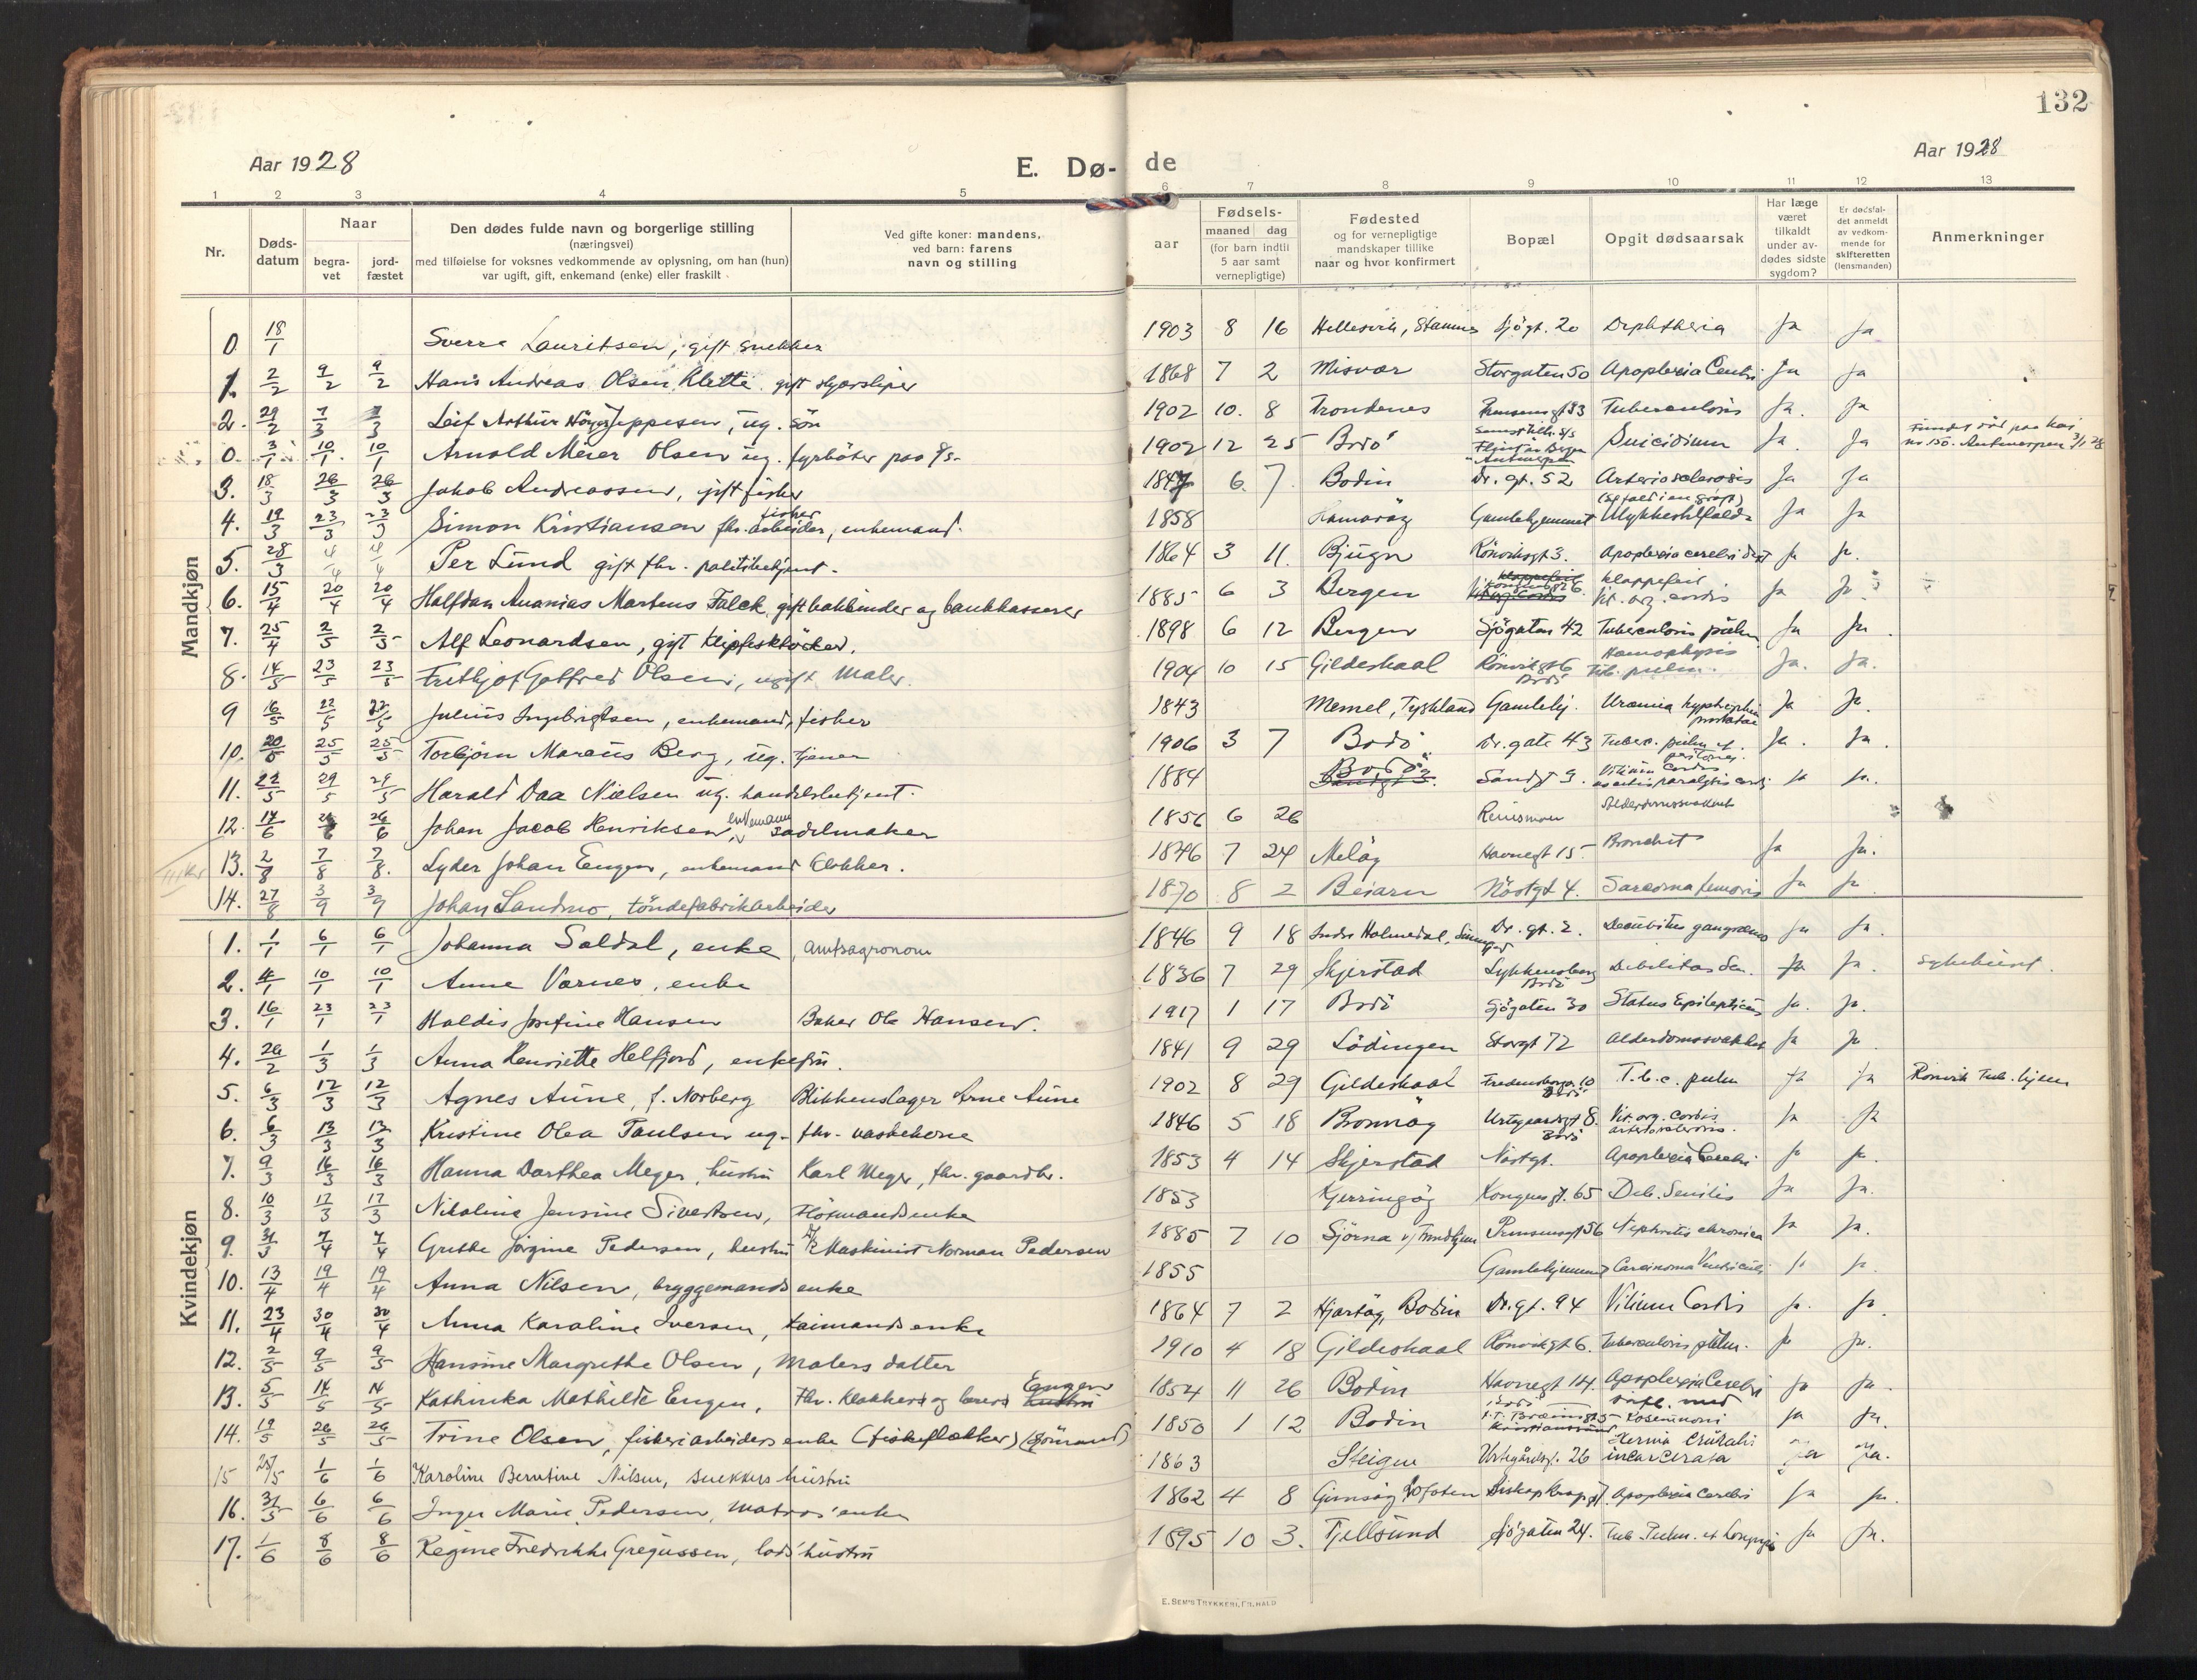 132
Aar 1928
E. Dø- de
Aar 1928
1 2 3 4 5 6 7 8 9 10 11 12 13
Nr.
Døds-datum
Naar
begra-vet
jord-fæstet
Den dødes fulde navn og borgerlige stilling
(næringsvei)
med tilføielse for voksnes vedkommende av oplysning, om han (hun)
var ugift, gift, enkemand (enke) eller fraskilt
Ved gifte koner: mandens,
ved barn: farens
navn og stilling
Fødsels-
aar
maaned dag
(for barn indtil
5 aar samt
vernepligtige)
Fødested
og for vernepligtige
mandskaper tillike
naar og hvor konfirmert
Bopæl
Opgit dødsaarsak
Har læge
været
tilkaldt
under av-
dødes sidste
sygdom?
Er dødsfal-
det anmeldt
av vedkom-
mende for
skifteretten
(lensmanden)
Anmerkninger
Mandkjøn
0 18/1 Sverre Lauritsen, gift snekker 1903 8 16 Hellesvik, Stamnes Sjögt. 20 Diphtheria Ja Ja
1. 2/2 9/2 9/2 Hans Andreas Olsen Klette gift 1868 7 2 Misvær Storgaten 50 Apoplexia Cerebri Ja Ja
2. 29/2 7/3 7/3 Leif Arthur Jeppesen, ug. sön 1902 10. 8 Trondenes Prinsensgt 93 Tuberculosis Ja. Ja
0. 3/1 10/1 10/1 Arnold Meier Olsen ug. fyrböter paa 1902 12 25 Bodö Antwerpen Suicidium Ja. Ja Fundet död paa kai nr. 150. Antwerpen 3/1 28
3. 18/3 26/3 26/3 Jakob Andreassen, gift fisker 1847 6. 7. Bodin Dr. gt. 52 Arteriosclerosis Ja Ja
4. 19/3 23/3 23/3 Simon Kristiansen fhv. arbeider, fisker enkemand. 1858 Hamaröy Gamlehjemmet Ulykkestilfælde Ja Ja
5. 28/3 4/4 4/4 Per Lund gift fhv. politibetjent. 1864 3 11. Bjugn Rönvikgt 3. Apoplexia cerebri Ja Ja.
6. 15/4 20/4 20/4 Halfdan Ananias Martens Falck gift bokbinder og bankkasserer 1885 6 3 Bergen Klappefeil Vit. org. cordis Ja Ja
7. 25/4 2/5 2/5 Alf Leonardsen, gift Klipfisktörker. 1898 6 12 Bergen Sjögaten 42 Tuberculosis pulm Ja Ja.
8. 14/5 23/5 23/5 Frithjof Gotfred Olsen, ugift Maler. 1904 10 15 Gildeskaal Rönvikgt 6 Bodö Hæmophysis Tub. pulm. Ja. Ja.
9 16/5 22/5 22/5 Julius Ingebrigtsen, enkemand, fisker 1843 Memel, Tyskland Gamlehj. Uræmia hypertrophia prostatae Ja Ja.
10. 20/5 25/5 25/5 Torbjörn Marcus Berg, ug. tjener 1906 3 7 Bodö Dr. gate 43 Tuberc. pulm et. peritonei Ja. Ja.
11. 22/5 29/5 29/5 Harald Daa Nielsen ug. handelsbetjent. 1884 Bodö Sandgt 3. Vitium Cordis ascites paralysis cordis Ja Ja.
12. 17/6 26/6 26/6 Johan Jacob Henriksen enkemand sadelmaker 1856 6 26 Reinsmoen Alderdomssvakhet
13. 2/8 7/8 7/8. Lyder Johan Engen, enkemand Klokker. 1846 7 24 Melöy Havnegt 15. Bronchit Ja Ja.
14. 27/8 3/9 3/9 Johan Sandmo, töndefabrikarbeider 1870 8 2 Beiarn Nöstgt 4. Sarcoma femoris Ja Ja
Kvindekjøn
1. 1/1 6/1 6/1 Johanna Soldal, enke, amtsagronom 1846 9 18 Indre Holmedal, Dr. gt. 2. Decubitus gangrænos Ja Ja.
2. 4/1 10/1 10/1 Anne Vornes, enke 1836 7 29 Skjerstad Lykkensborg Bodö Debilitas Sen. Ja Ja.
3. 16/1 23/1 23/1 Haldis Josefine Hansen Baker Ole Hansen. 1917 1 17 Bodö Sjögaten 30 Status Epilepticus Ja. Ja.
4. 26/2 1/3 1/3 Anna Henriette Helfjord, enkefru. 1841 9 29 Lödingen Storgt 72 Alderdomssvakhet Ja Ja
5. 6/3 12/3 12/3 Agnes Aune, f. Norberg Blikkenslager Arne Aune 1902 8 29 Gildeskaal Fredensborgv. 10 Bodö T.b.c. pulm Ja Ja Rönvik Tub. hjem
6. 6/3 13/3 13/3 Kristine Olea Paulsen ug. fhv. vaskekone 1846 5 18 Brönnöy Urtegaardsgt 8. Bodö Vit. org. cordis arteriosclerosis. Ja Ja
7. 9/3 16/3 16/3 Hanna Dorthea Meyer, hustru Karl Meyer, fhv. gaardbr. 1853 4 14 Skjerstad Nöstgt. Apoplexia Cerebri Ja Ja.
8. 10/3 17/3 17/3 Nikoline Jensine Sivertsen, enke 1853 Kjerringöy Kongensgt. 65 Deb. Senilis Ja Ja.
9. 31/3 7/4 7/4 Grethe Jörgine Pedersen, hustru Maskinist Norman Pedersen 1885 7 10 Prinsensgt 56 Nephritis chronica Ja Ja.
10. 13/4 19/4 19/4 Anna Nilsen, bryggemands enke 1855 Gamlehjemmet Carcinoma Ventriculi Ja Ja.
11. 23/4 30/4 30/4 Anna Karoline Iversen, kaimands enke 1864 7 2 Hjartöy, Bodin Dr. gt. 94 Vitium Cordis Ja. Ja.
12. 2/5 9/5 9/5 Hansine Margrethe Olsen, malers datter 1910 4 18 Gildeskaal Rönvikgt 6. Tuberculosis pulm. Ja Ja.
13. 5/5 14/5 14/5 Kathinka Mathilde Engen, Fhv. klokker og lærer Engen hustru 1854 11 26 Bodin Havnegt 14. Bodö Apoplexia Cerebri Ja Ja.
14. 19/5 26/5 26/5 Trine Olsen, fiskeriarbeiders enke 1850 1 12 Bodin Ja Ja.
15 25/5 1/6 1/6 Karoline Berntine Nilsen, snekkers hustru 1863 Steigen Urtegårdsgt. 26 Hernia Cruralis incarcerata Ja Ja.
16. 31/5 6/6 6/6 Inger Marie Pedersen, matros' enke 1862 4 8 Gimsöy Lofoten Apoplexia Cerebri Ja Ja.
17. 1/6 8/6 8/6 Regine Fredrikke Gregussen, lods' hustru 1895 10 3. Tjellsund Sjögaten 24. Tub. Pulm. et Ja Ja.
sykehuset.
E. SEM'S TRYKKERI, FR.HALD